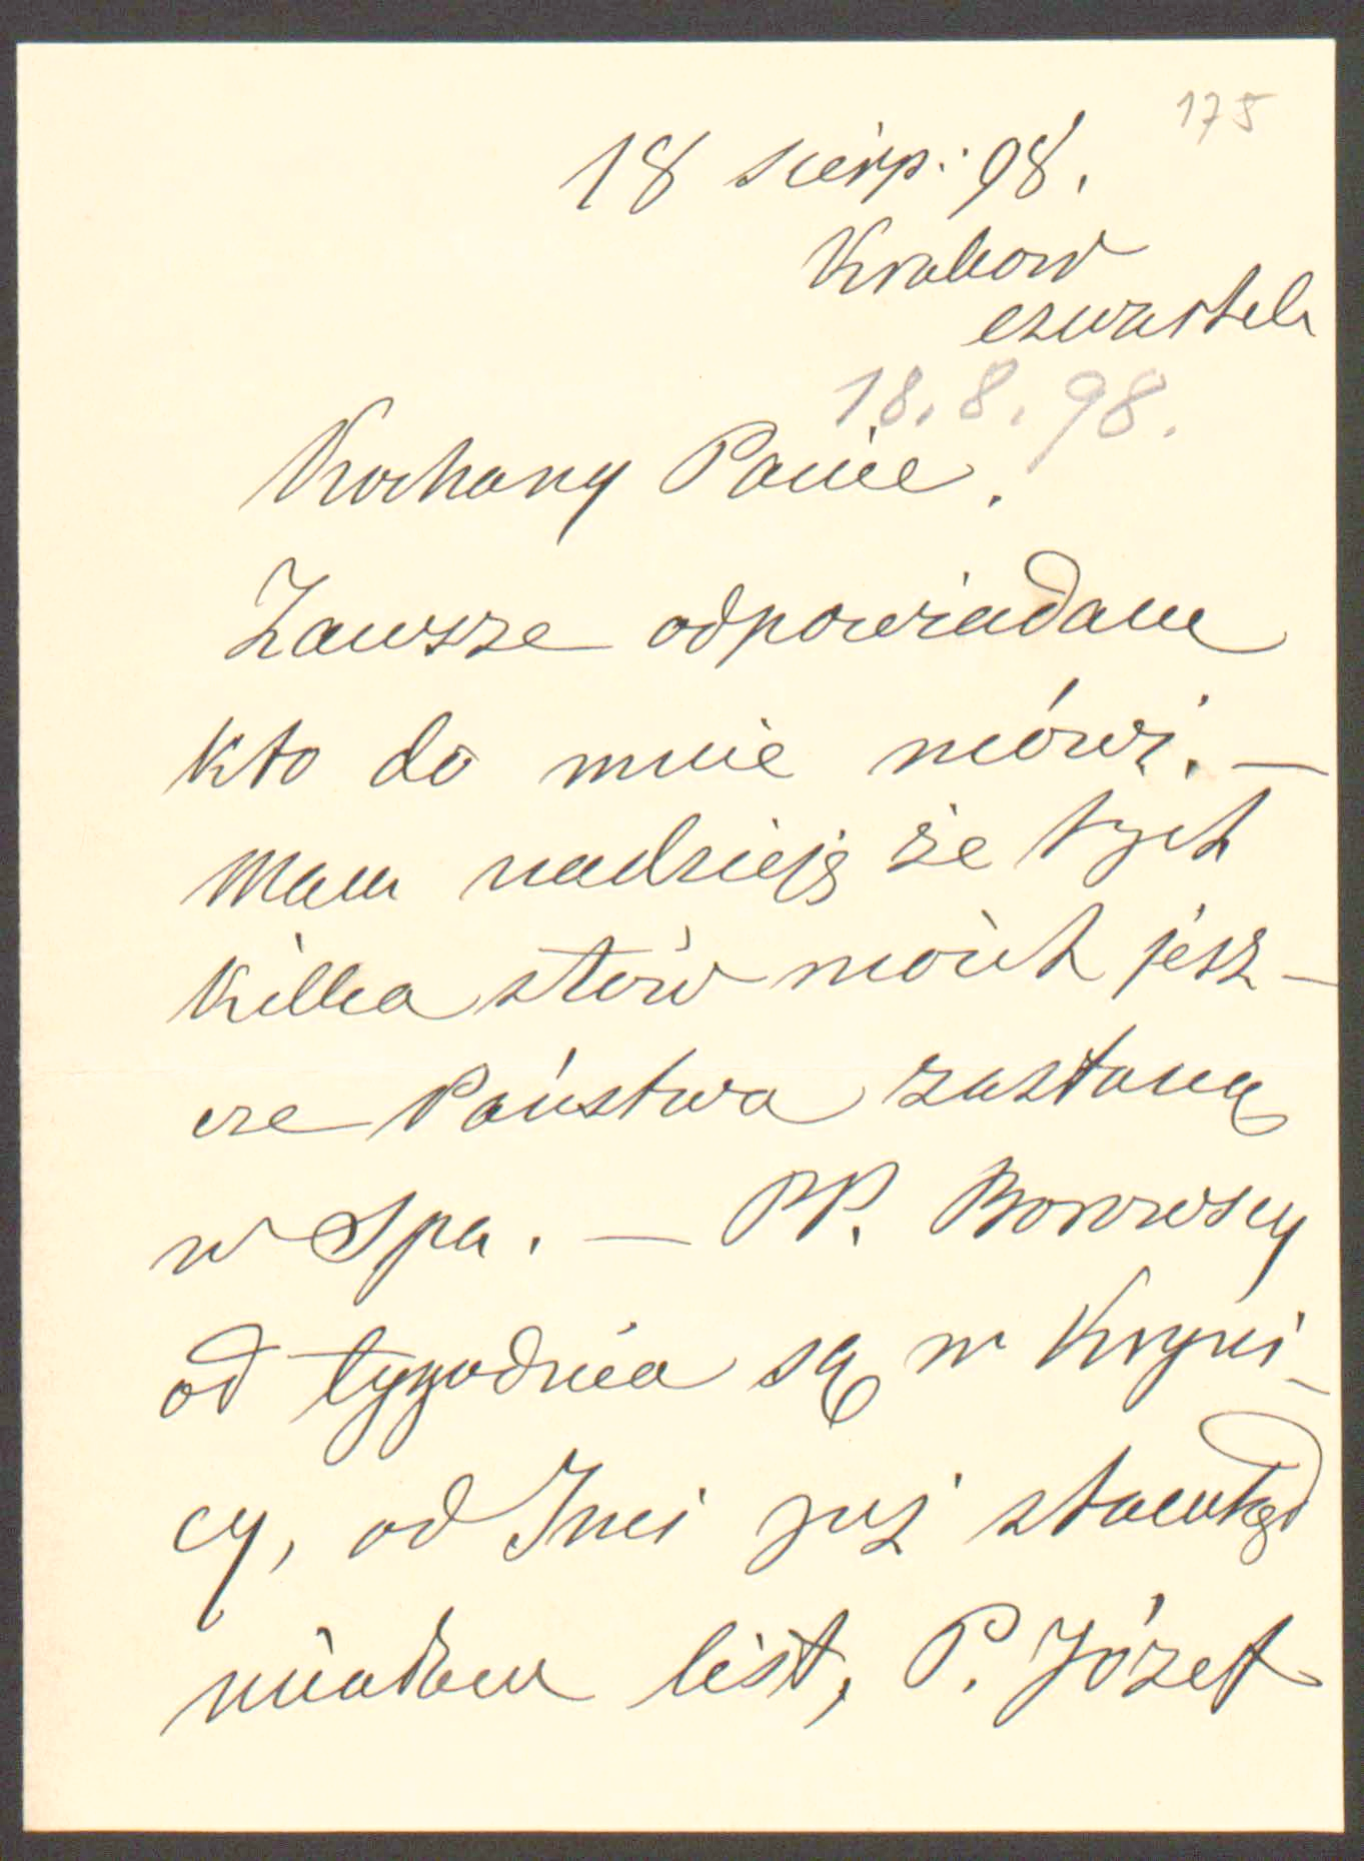 175
18 sierp: 98.
Krakow
czwartek
18.8.98.
Kochany Panie.
Zawsze odpowiadam
kto do mnie mówi. —
Mam nadzieję że tych
kilka słów moich jesz-
cze Państwa zastaną
w Spa. — PP. Borowscy
od tygodnia są w Kryni-
cy, od Inci już stamtąd
miałam list, P. Józef